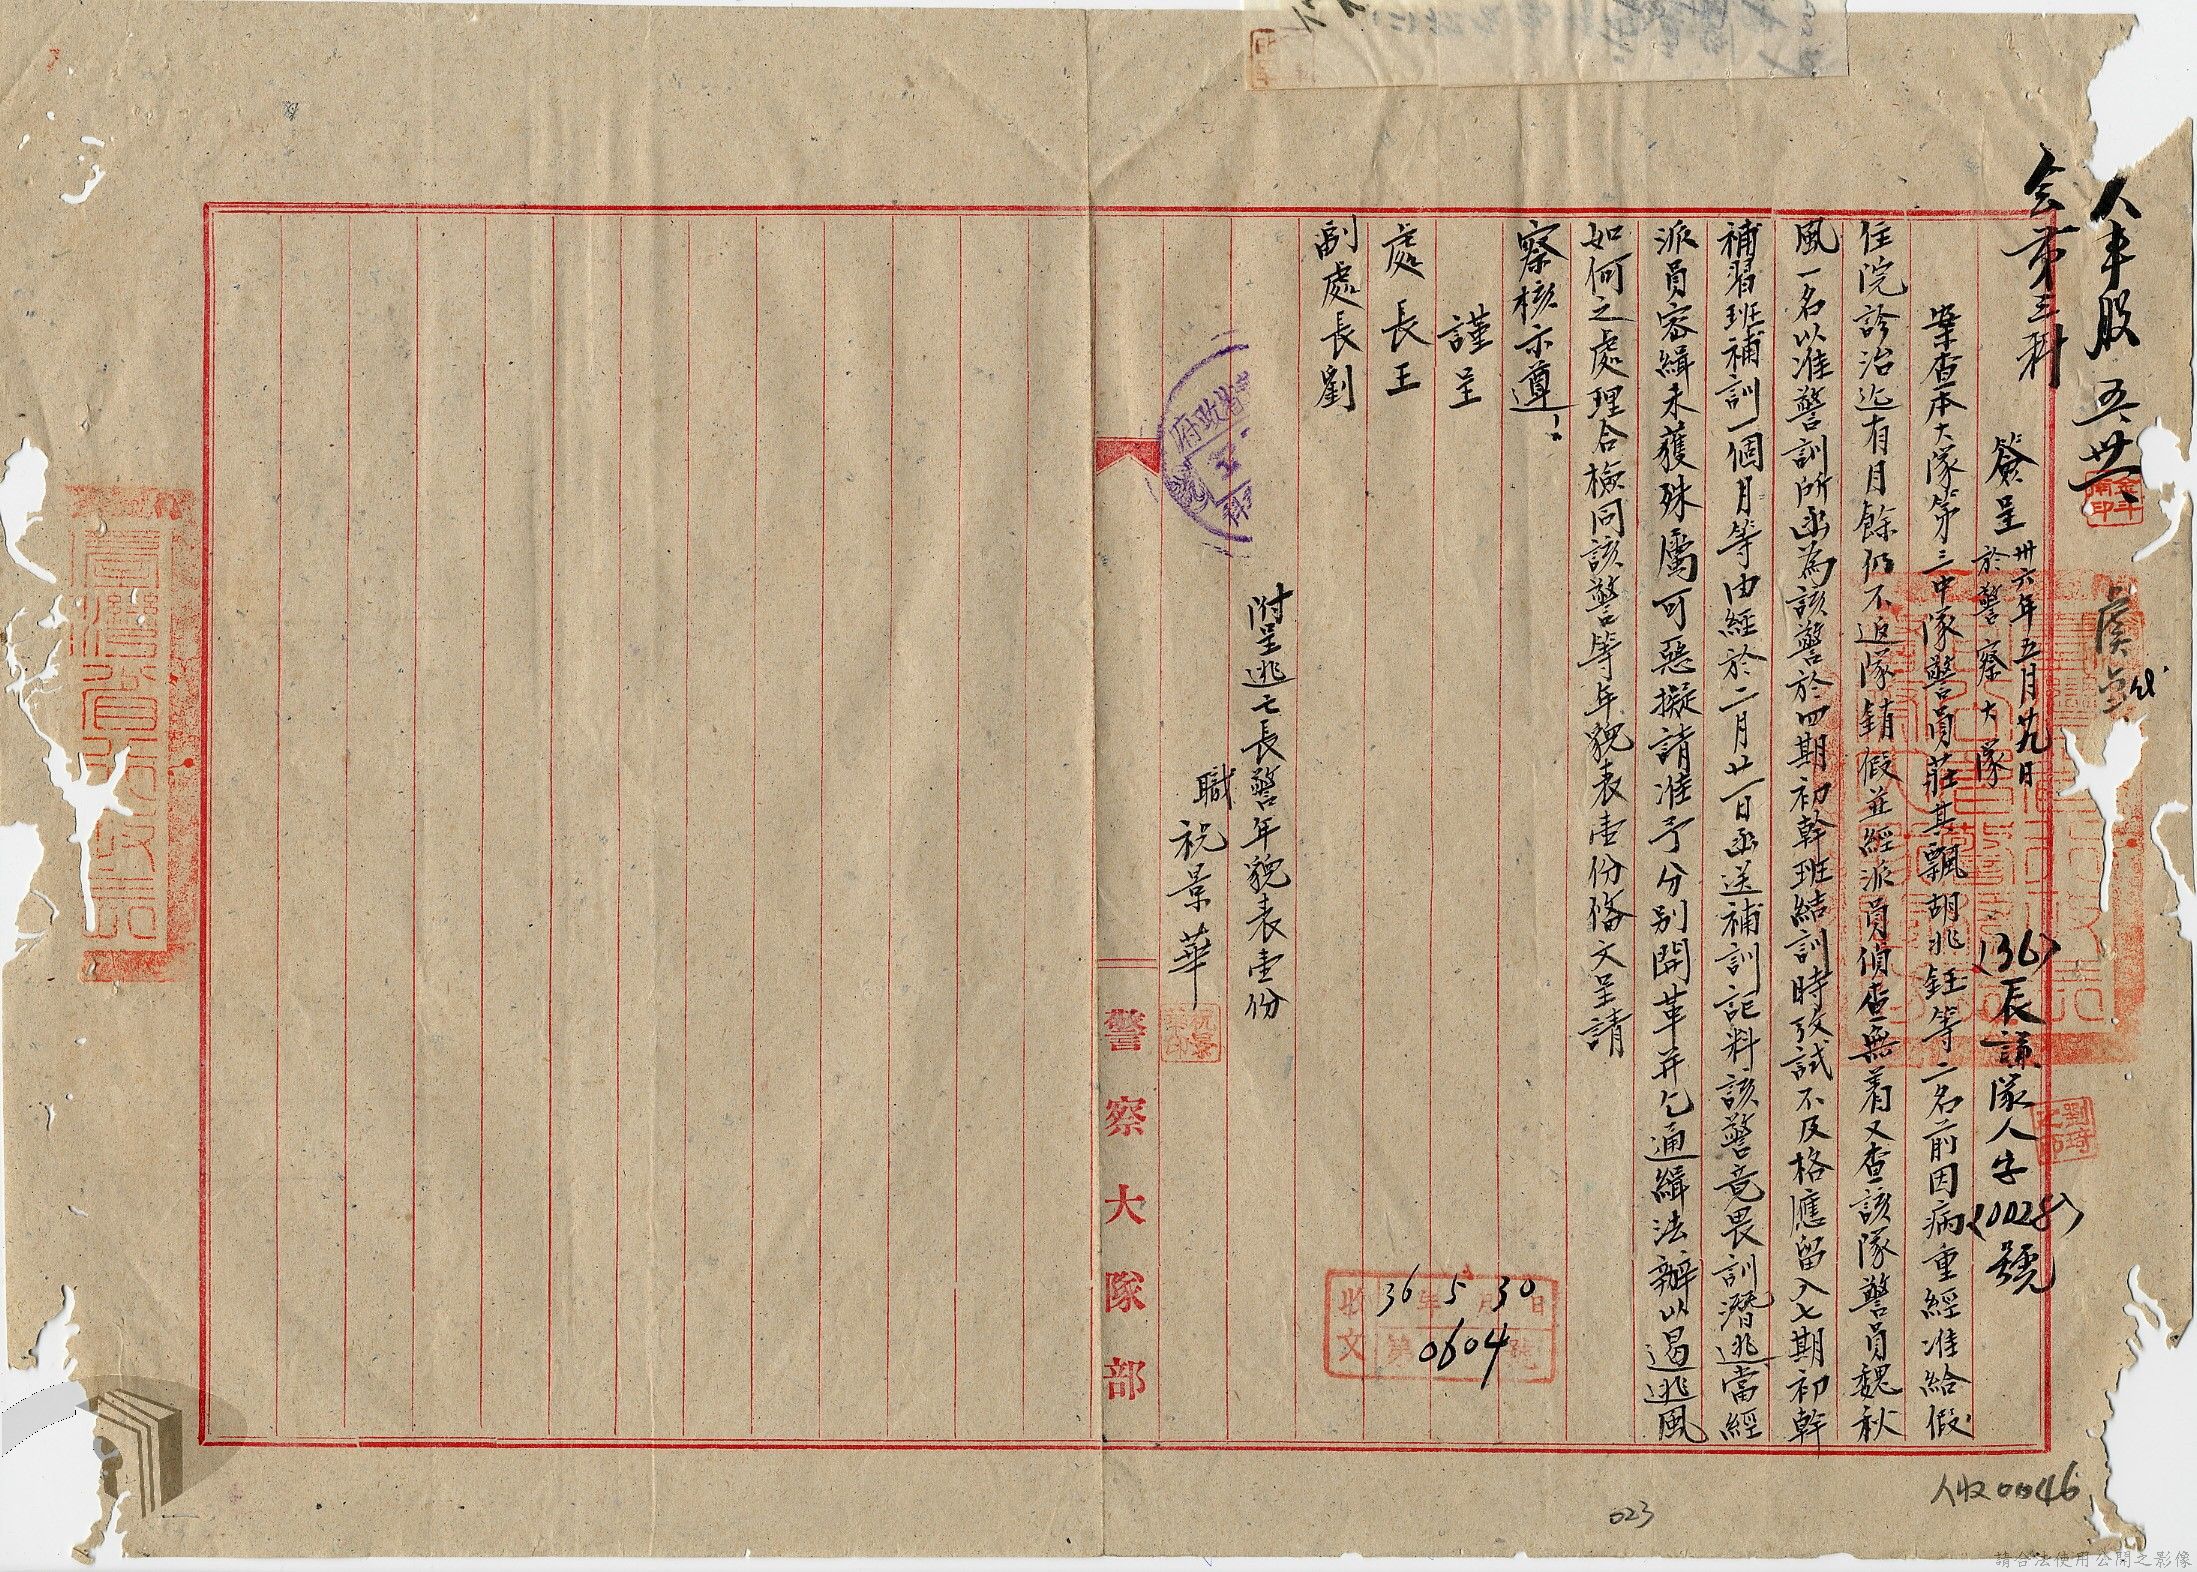 人事股 五、卅、
会第三科
簽呈 卅六年五月廿九日
於警察大隊
(36)辰謙隊人字(0028)號
案查本大隊第三中隊警員莊其飄胡兆鈺等二名前因病重經准給假
住院診治迄有月餘仍不返隊銷假並經派員偵查無着又查該隊警員魏秋
風一名以准警訓所函為該警於四期初幹班結訓時攷試不及格應留入七期初幹
補習班補訓一個月等由經於二月廿一日函送補訓記料該警竟畏訓潛逃當經
派員密緝未獲殊屬可惡擬請准予分别開革并乞通緝法辦以遏逃風
如何之處理合檢同該警等年貌表壹份俻文呈請
察核示遵!
謹呈
處長王
副處長劉
附呈逃亡長警年貌表壹份
職祝景華
祝景華印
警察大隊部
收文 36年5月30日
第0604號
人收0046
023
請合法使用公開之影像